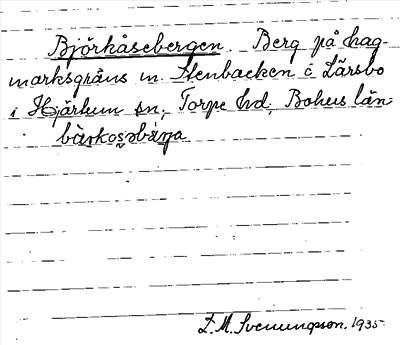 Björkåsebergen. Berg på hag-
marksgräns m. Stenbacken i Lärsbo
i Hjärtum sn, Torpe hd, Bohus län.
L. M. Svenungsson. 1935.